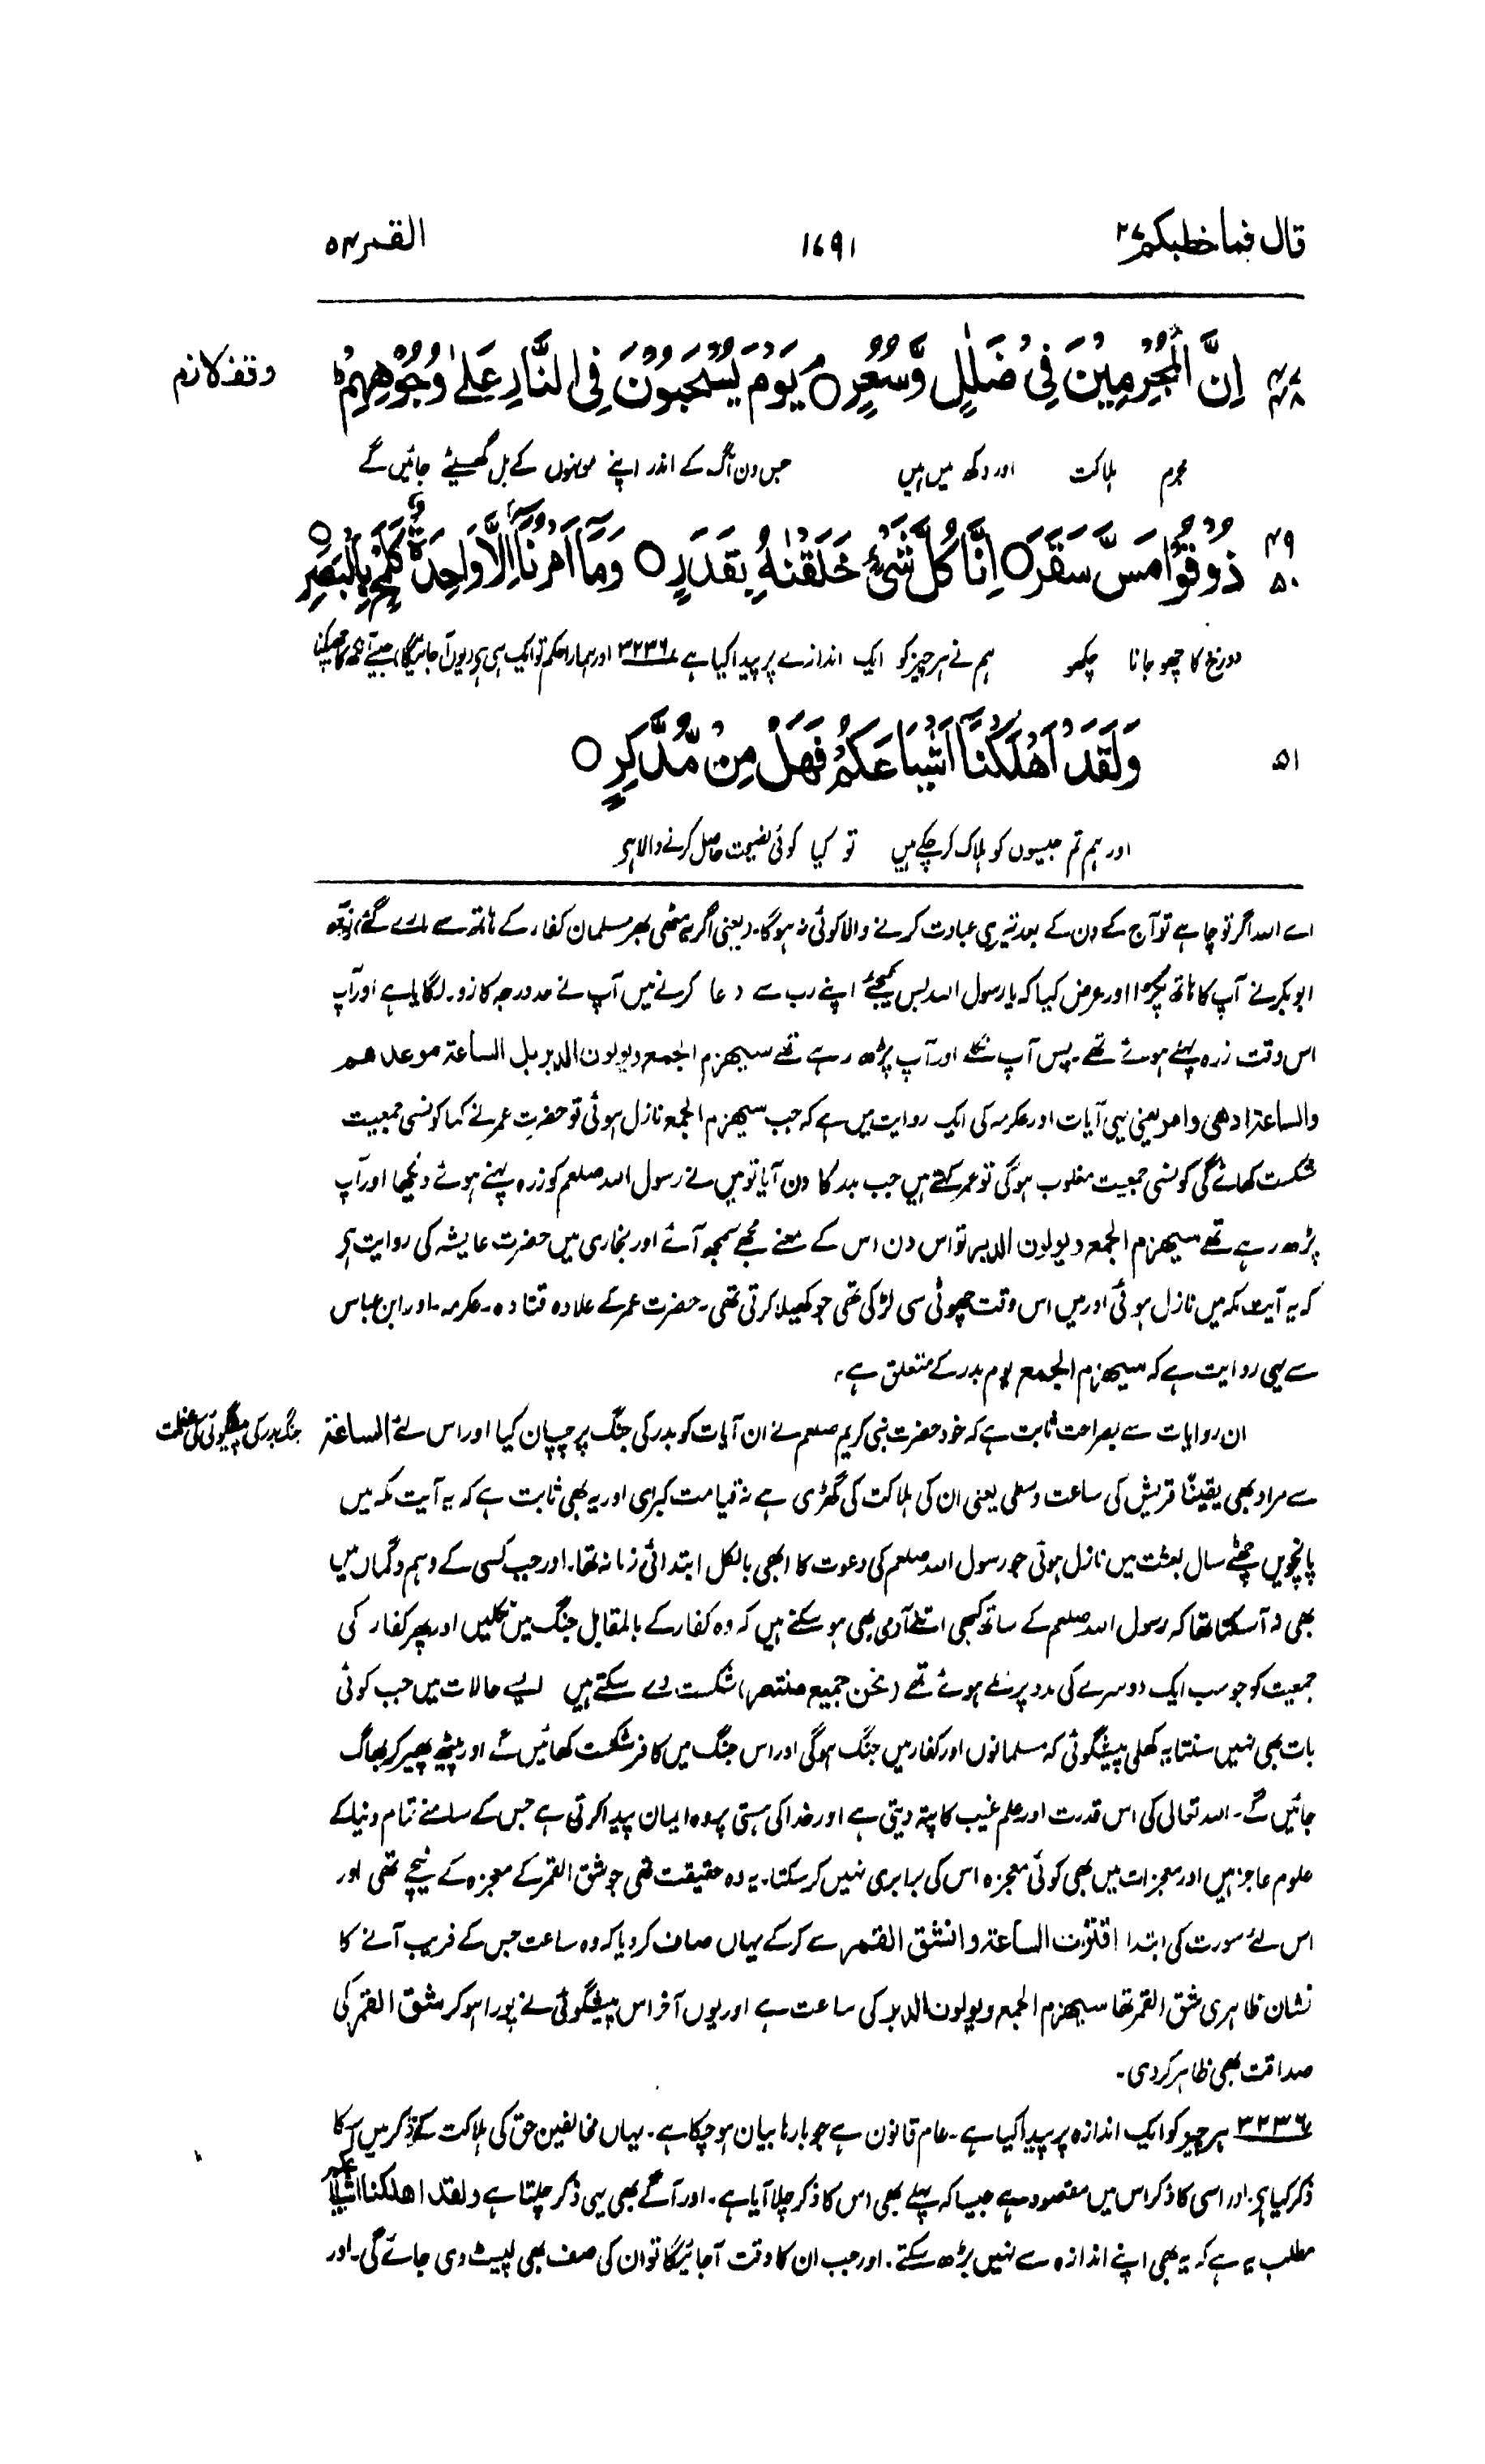 قال فما خطبکم ۲۷
۱۶۹۱
القمر ۵۴
۴۷ اِنَّ الْمُجْرِمِيْنَ فِيْ ضَلٰلٍ وَّسُعُرٍ ○ يَوْمَ يُسْحَبُوْنَ فِي النَّارِ عَلٰى وُجُوْهِهِمْ ؕ
۴۸
وقف لازم
مجرم ہلاکت اور دکھ میں ہیں جس دن آگ کے اندر اپنے مونہوں کے بل گھسیٹے جائیں گے
۴۹ ذُوْقُوْا مَسَّ سَقَرَ ○ اِنَّا كُلَّ شَيْءٍ خَلَقْنٰهُ بِقَدَرٍ ○ وَمَآ اَمْرُنَآ اِلَّا وَاحِدَةٌ كَلَمْحٍۭ بِالْبَصَرِ ○
۵۰
دوزخ کا چھو جانا چکھو ہم نے ہر چیز کو ایک اندازے پر پیدا کیا ہے ۳۲۳۶ اور ہمارا حکم تو ایک ہی ہی (یوں آ جائیگا) جیسے آنکھ کا جھپکنا
۵۱ وَلَقَدْ اَهْلَكْنَآ اَشْيَاعَكُمْ فَهَلْ مِنْ مُّدَّكِرٍ ○
اور ہم تم جیسوں کو ہلاک کر چکے ہیں تو کیا کوئی نصیحت حاصل کرنے والا ہی
اے اللہ اگر تو چاہے تو آج کے دن کے بعد تیری عبادت کرنے والا کوئی نہ ہوگا۔ (یعنی اگر یہ مٹھی بھر مسلمان کفار کے ہاتھ سے مارے گئے) تو
ابوبکر نے آپ کا ہاتھ پکڑا اور عرض کیا کہ یا رسول اللہ بس کیجئے اپنے رب سے دعا کرنے میں آپ نے حد درجہ کا زور لگایا ہے اور آپ
اس وقت زرہ پہنے ہوئے تھے۔ پس آپ نکلے اور آپ پڑھ رہے تھے سیھزم الجمع ویولون الدبر بل الساعۃ موعدھم
والساعۃ ادھی وامر یعنی یہی آیات اور عکرمہ کی ایک روایت میں ہے کہ جب سیھزم الجمع نازل ہوئی تو حضرت عمر نے کہا کونسی جمعیت
شکست کھائے گی کونسی جمعیت مغلوب ہوگی تو عمر کہتے ہیں جب بدر کا دن آیا تو میں نے رسول اللہ صلعم کو زرہ پہنے ہوئے دیکھا اور آپ
پڑھ رہے تھے سیھزم الجمع ویولون الدبر تو اس دن اس کے معنے مجھے سمجھ آئے اور بخاری میں حضرت عایشہ کی روایت ہی
کہ یہ آیت مکہ میں نازل ہوئی اور میں اس وقت چھوٹی سی لڑکی تھی جو کھیلا کرتی تھی۔ حضرت عمر کے علاوہ قتادہ۔ عکرمہ۔ اور ابن عباس
سے یہی روایت ہے کہ سیھزم الجمع یوم بدر کے متعلق ہے۔
ان روایات سے بصراحت ثابت ہے کہ خود حضرت نبی کریم صلعم نے ان آیات کو بدر کی جنگ پر چسپان کیا اور اس لئے الساعۃ
جنگ بدر کی پیشگوئی کی عظمت
سے مراد بھی یقیناً قریش کی ساعت وسطی یعنی ان کی ہلاکت کی گھڑی ہے نہ قیامت کبرای اور یہ بھی ثابت ہے کہ یہ آیت مکہ میں
پانچویں چھٹے سال بعثت میں نازل ہوئی جو رسول اللہ صلعم کی دعوت کا ابھی بالکل ابتدائی زمانہ تھا۔ اور جب کسی کے وہم و گمان میں
بھی نہ آ سکتا تھا کہ رسول اللہ صلعم کے ساتھ کبھی اتنے آدمی بھی ہو سکتے ہیں کہ وہ کفار کے بالمقابل جنگ میں نکلیں اور پھر کفار کی
جمعیت کو جو سب ایک دوسرے کی مدد پر تلے ہوئے تھے (نحن جمیع منتصر) شکست دے سکتے ہیں ایسے حالات میں جب کوئی
بات بھی نہیں سنتا یہ کھلی پیشگوئی کہ مسلمانوں اور کفار میں جنگ ہوگی اور اس جنگ میں کافر شکست کھائیں گے اور پیٹھ پھیر کر بھاگ
جائیں گے۔ اللہ تعالی کی اس قدرت اور علم غیب کا پتہ دیتی ہے اور خدا کی ہستی پر وہ ایمان پیدا کرتی ہے جس کے سامنے تمام دنیا کے
علوم عاجز ہیں اور معجزات میں بھی کوئی معجزہ اس کی برابری نہیں کر سکتا۔ یہ وہ حقیقت تھی جو شق القمر کے معجزہ کے نیچے تھی اور
اس لئے سورت کی ابتدا اقتربت الساعۃ وانشق القمر سے کر کے یہاں صاف کر دیا کہ وہ ساعت جس کے قریب آنے کا
نشان ظاہری شق القمر تھا سیھزم الجمع ویولون الدبر کی ساعت ہے اور یوں آخر اس پیشگوئی نے پورا ہو کر شق القمر کی
صداقت بھی ظاہر کر دی۔
۳۲۳۶ ہر چیز کو ایک اندازہ پر پیدا کیا ہے۔ عام قانون ہے جو بارہا بیان ہو چکا ہے۔ یہاں مخالفین حق کی ہلاکت کے ذکر میں اس کا
ذکر کیا ہی۔ اور اسی کا ذکر اس میں مقصود ہے جیسا کہ پہلے بھی اس کا ذکر چلا آیا ہے۔ اور آگے بھی یہی ذکر چلتا ہے ولقد اھلکنا اشیاعکم
مطلب یہ ہے کہ یہ بھی اپنے اندازہ سے نہیں بڑھ سکتے۔ اور جب ان کا وقت آ جائیگا تو ان کی صف بھی لپیٹ دی جائے گی۔ اور